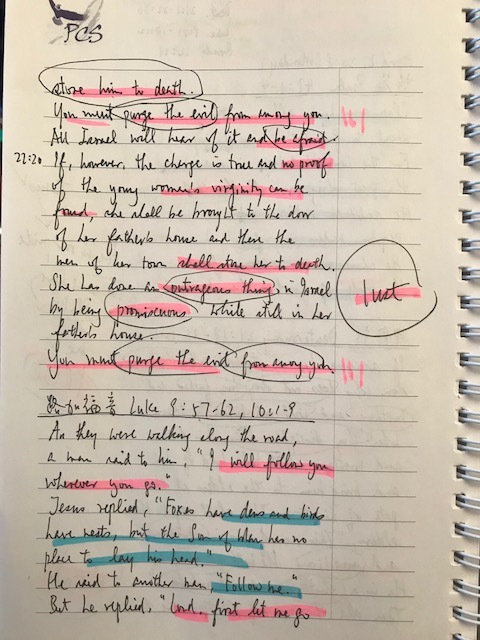 PCS
stone him to death.
You must purge the evil from among you.
All Israel will hear of it and be afraid.
22:20 If, however, the charge is true and no proof
of the young women's virginity can be
found, she shall be brought to the door
of her father's house and there the
men of her town shall stone her to death.
She has done an outrageous thing in Israel
by being promiscuous while still in her
father's house.
You must purge the evil from among you.
Lust
福音 Luke 9:57-62, 10:1-9
As they were walking along the road,
a man said to him, "I will follow you
wherever you go."
Jesus replied, "Foxes have dens and birds
have nests, but the Son of Man has no
place to lay his head."
He said to another man, "Follow me."
But he replied, "Lord, first let me go